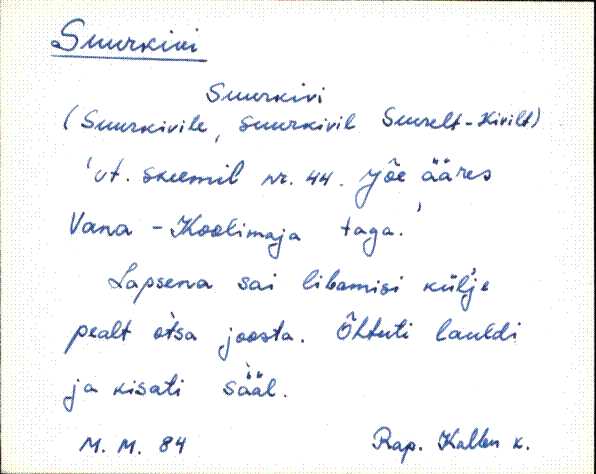 Suurkivi
Suurkivi
(Suurkivile, suurkivil Suurelt-Kivilt)
'vt. skeemil nr. 44. Jõe ääres
Vana-Koolimaja taga.
Lapsena sai libamisi külje
pealt otsa joosta. Õhtuti lauldi
ja kisati sääl.
M. M. 84
Rap. Kallen k.